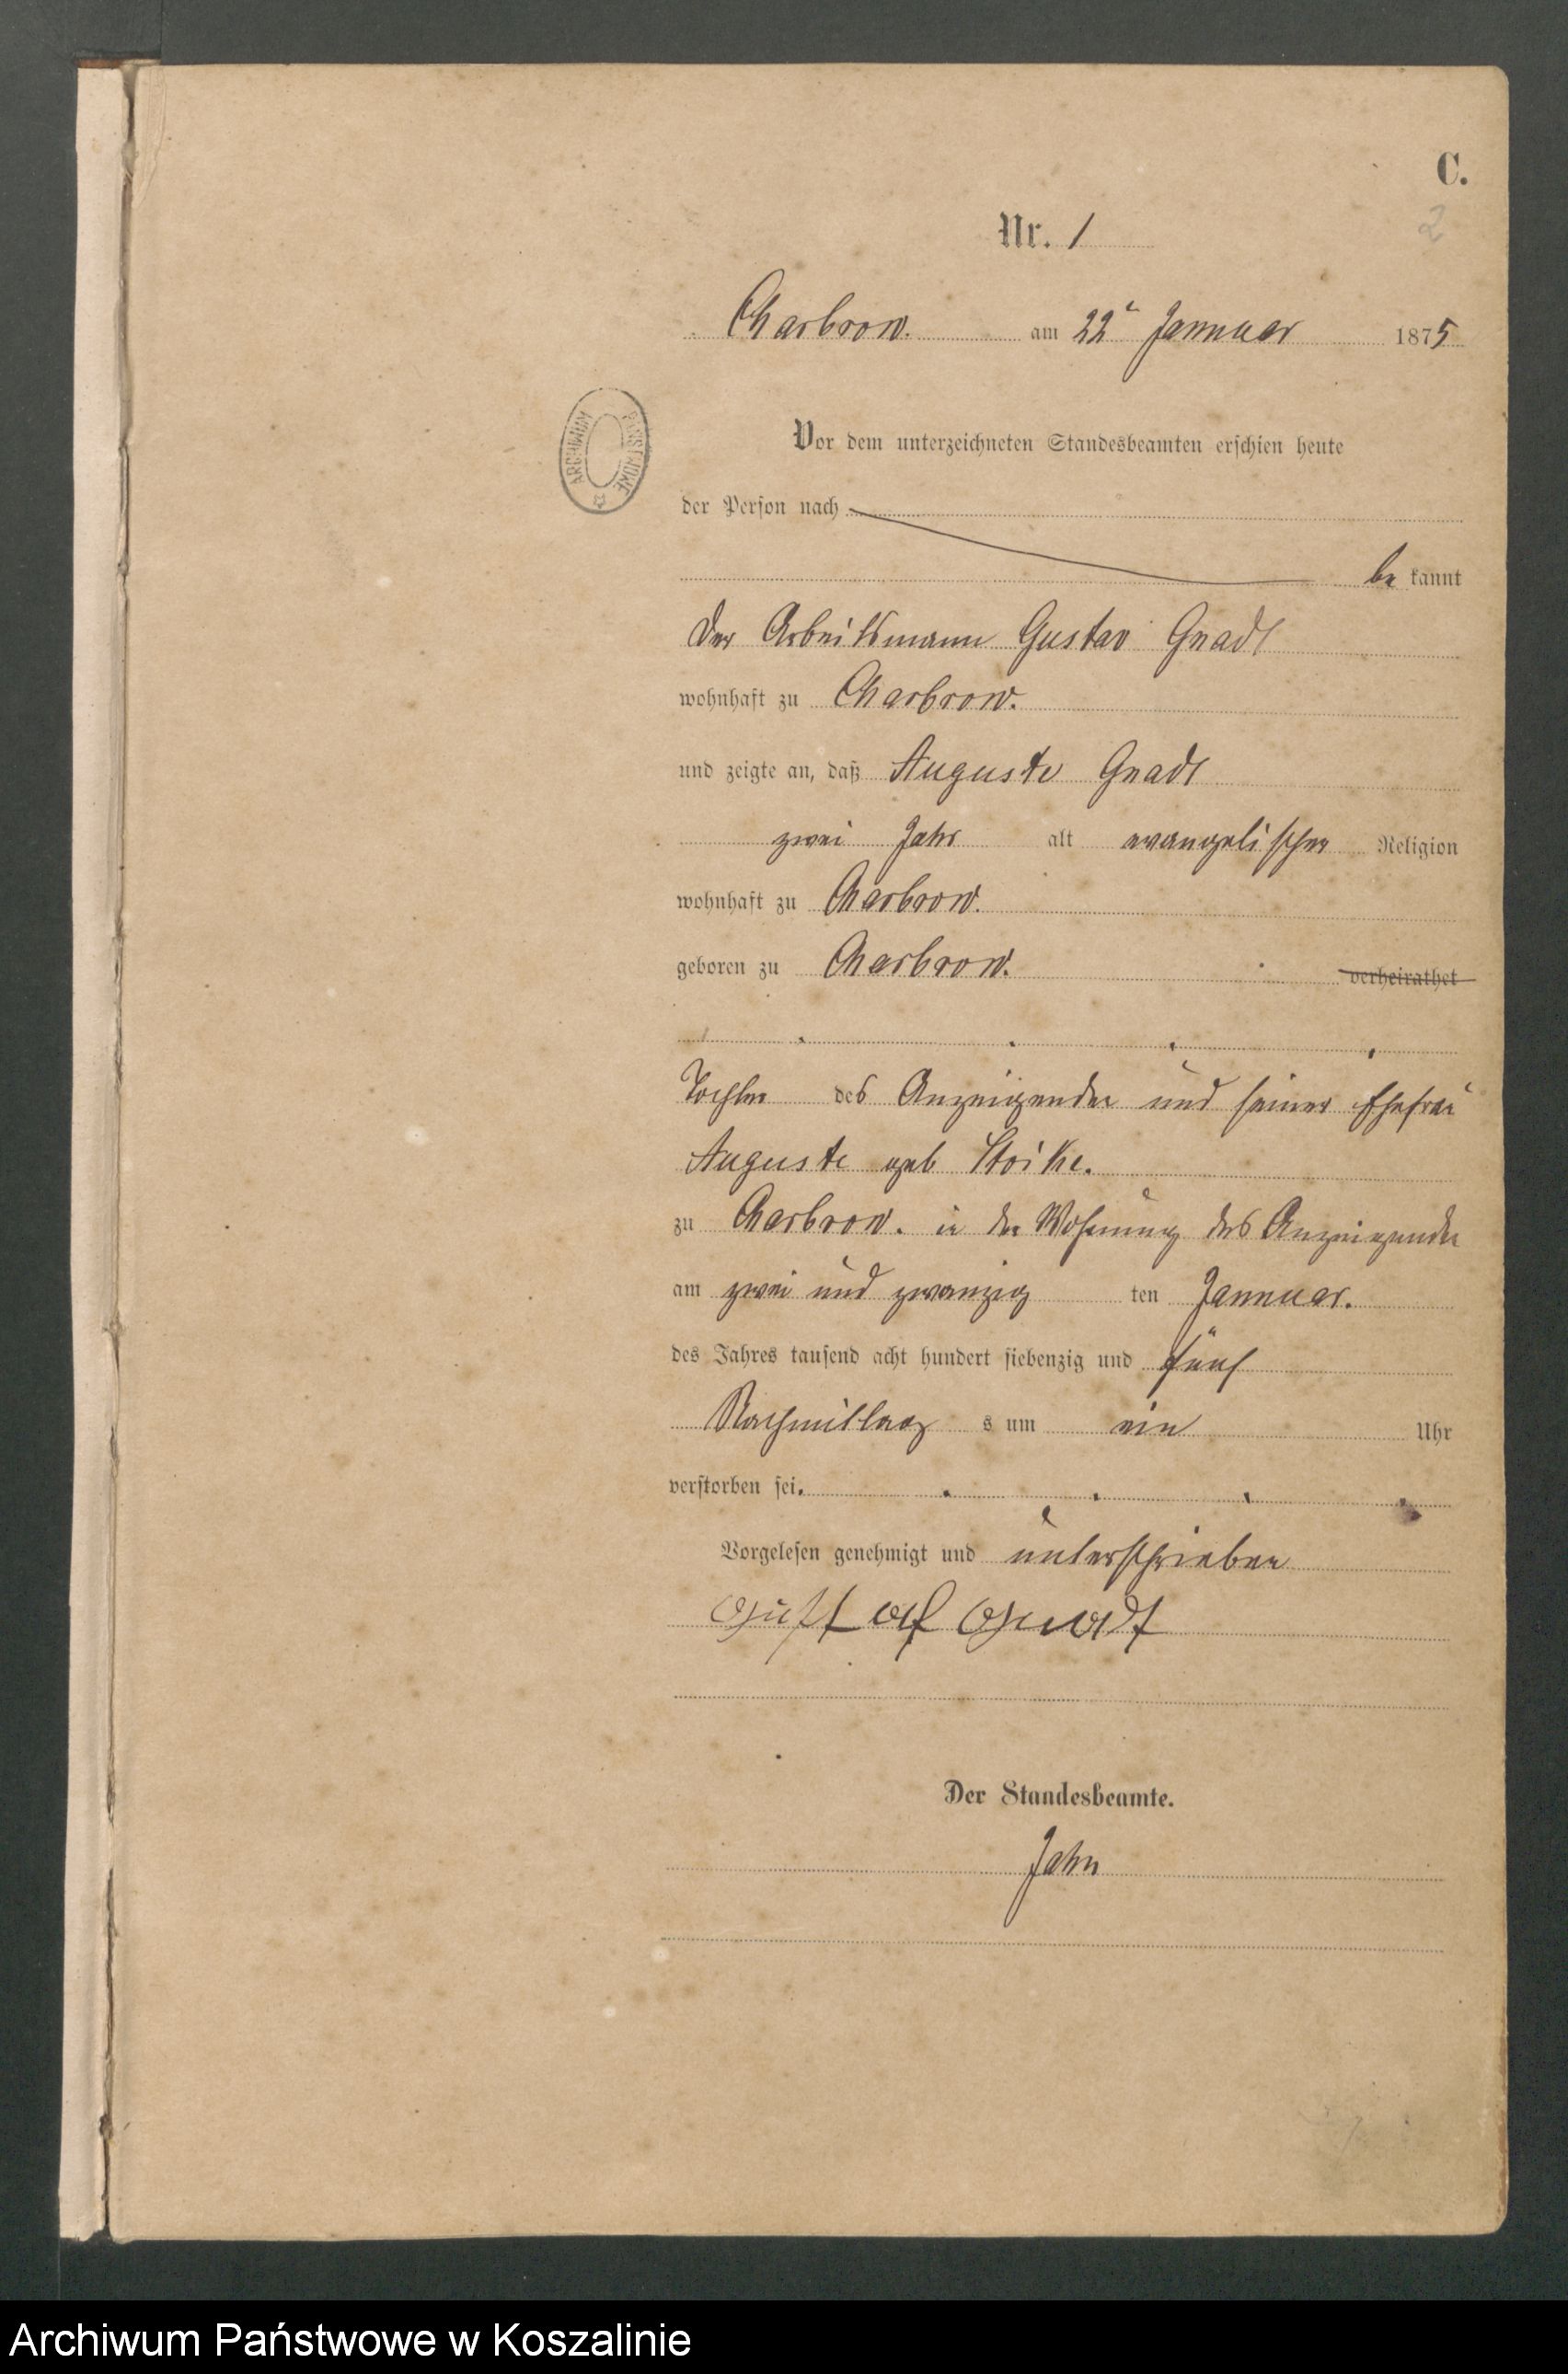 C.
2
Nr. 1
Charbrow. am 22t Januar 1875
Vor dem unterzeichneten Standesbeamten erschien heute
der Person nach
be kannt
der Arbeitsmann Gustav Gnadt
wohnhaft zu Charbrow.
und zeigte an, daß Auguste Gnadt
zwei Jahr alt evangelischer Religion
wohnhaft zu Charbrow.
geboren zu Charbrow. verheirathet
Tochter des Anzeigenden und seiner Ehefrau
Auguste geb Stoike.
zu Charbrow. in der Wohnung des Anzeigenden
am zwei und zwanzig ten Januar.
des Jahres tausend acht hundert siebenzig und fünf
Nachmittag s um ein Uhr
verstorben sei.
Vorgelesen genehmigt und unterschrieben
Gustaf Gnadt
Der Standesbeamte.
Jahn
ARCHIWUM PAŃSTWOWE
Archiwum Państwowe w Koszalinie